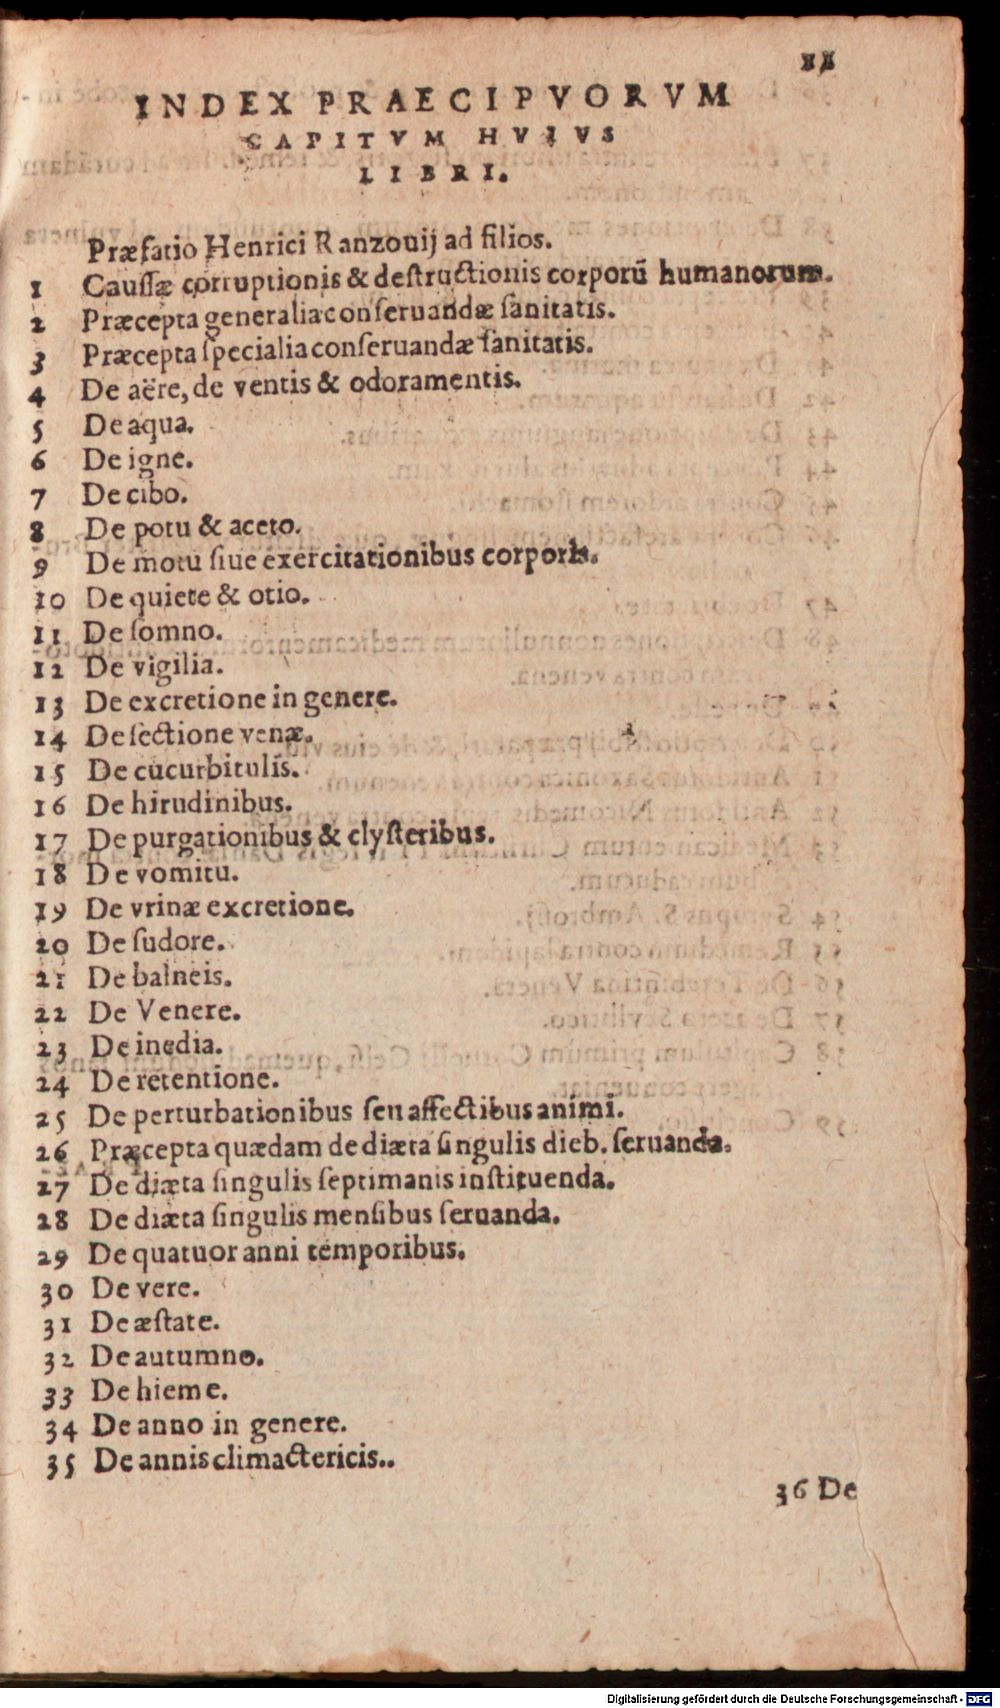 11
INDEX PRAECIPVORVM
CAPITVM HVIVS
LIBRI.
Præfatio Henrici Ranzouij ad filios.
1 Caussæ corruptionis & destructionis corporū humanorum.
2 Præcepta generalia conseruandæ sanitatis.
3 Præcepta specialia conseruandæ sanitatis.
4 De aëre, de ventis & odoramentis.
5 De aqua.
6 De igne.
7 De cibo.
8 De potu & aceto.
9 De motu siue exercitationibus corporis.
10 De quiete & otio.
11 De somno.
12 De vigilia.
13 De excretione in genere.
14 De sectione venæ.
15 De cucurbitulis.
16 De hirudinibus.
17 De purgationibus & clysteribus.
18 De vomitu.
19 De vrinæ excretione.
20 De sudore.
21 De balneis.
22 De Venere.
23 De inedia.
24 De retentione.
25 De perturbationibus seu affectibus animi.
26 Præcepta quædam de diæta singulis dieb. seruanda.
27 De diæta singulis septimanis instituenda.
28 De diæta singulis mensibus seruanda.
29 De quatuor anni temporibus.
30 De vere.
31 De æstate.
32 De autumno.
33 De hieme.
34 De anno in genere.
35 De annis climactericis..
36 De
Digitalisierung gefördert durch die Deutsche Forschungsgemeinschaft - DFG